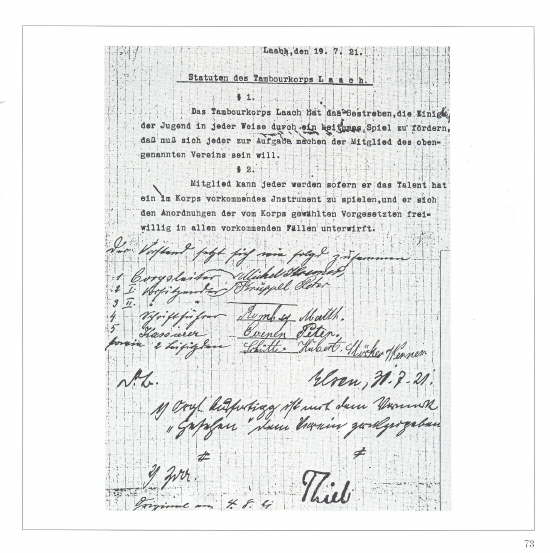 Laach, den 19. 7. 21.
Statuten des Tambourkorps Laach.
§ 1.
Das Tambourkorps Laach hat das Bestreben, die Einigk
der Jugend in jeder Weise durch ein Spiel zu fördern,
daß muß sich jeder zur Aufgabe machen der Mitglied des oben-
genannten Vereins sein will.
§ 2.
Mitglied kann jeder werden sofern er das Talent hat
ein im Korps vorkommendes Jnstrument zu spielen, und er sich
den Anordnungen der vom Korps gewählten Vorgesetzten frei-
willig in allen vorkommenden Fällen unterwirft.
Der Vorstand setzt sich wie folgt zusammen
1 Corpsleiter Michel
2 I. Vorsitzender Knüppel Peter
3 II. " "
4 Schriftführer Math.
5 Kassierer Evenen Peter.
sowie 2 Beisitzenden Schütt. Hubert. Stöcker Hennen
Elsen, 30.7.21.
1) Orgl. Ausfertigg ist mit dem Vermerk
„Gesehen" dem Verein zurückgegeben
2) Zdr.
Thiel
Original am 4. 8. 21
73